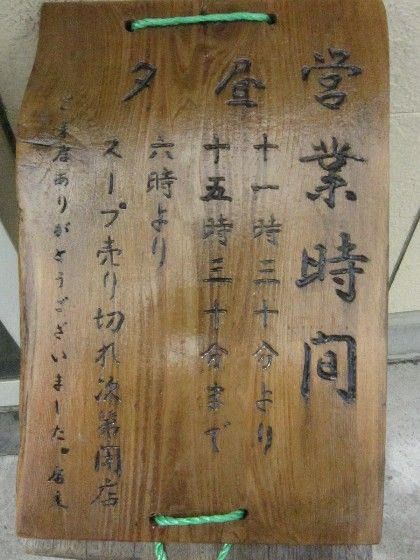 営業時间
昼
十一時三十分より
十五時三十分まで
夕
六時より
スープ売り切れ次第閉店
ご来店ありがとうございました。店主